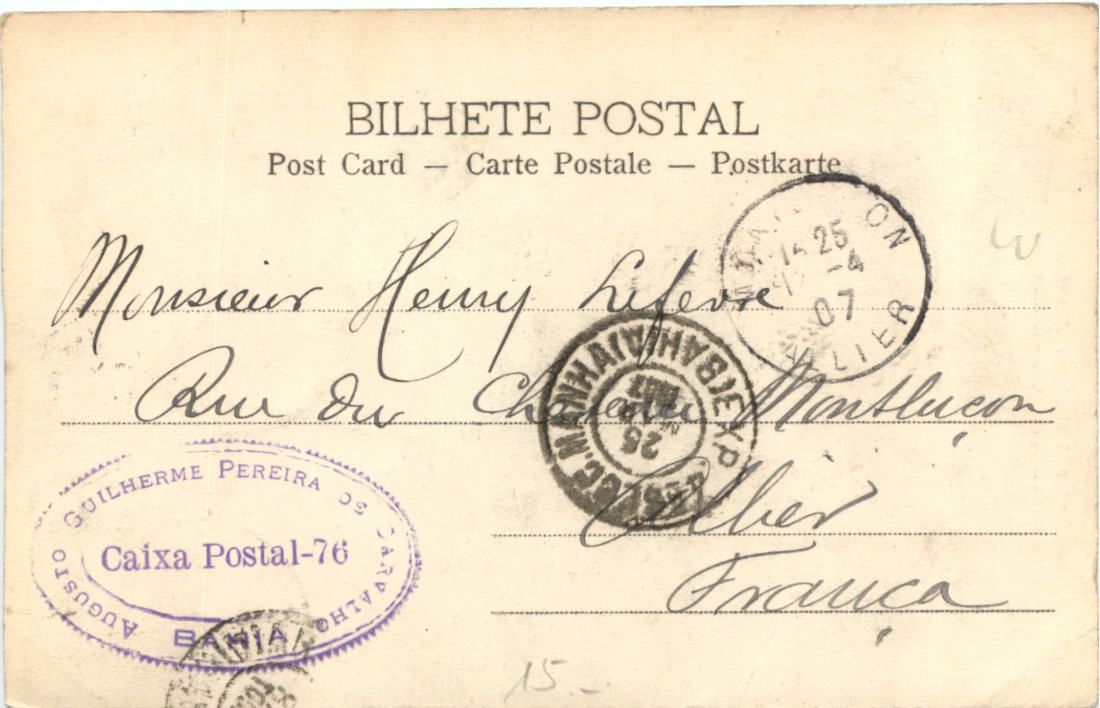 BILHETE POSTAL
Post Card — Carte Postale — Postkarte
Monsieur Henry Lefevre
Rue du Montluçon
Allier
França
ALLIER
25
-4
07
BAHIA
EXP
25
AUGUSTO GUILHERME PEREIRA DE CARVALHO
Caixa Postal-76
BAHIA
15.-